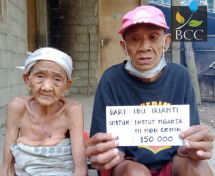 BCC
DARI IBU IRIANTI
UNTUK IKETUT NGANTA
NI NGH CENIK
150.000